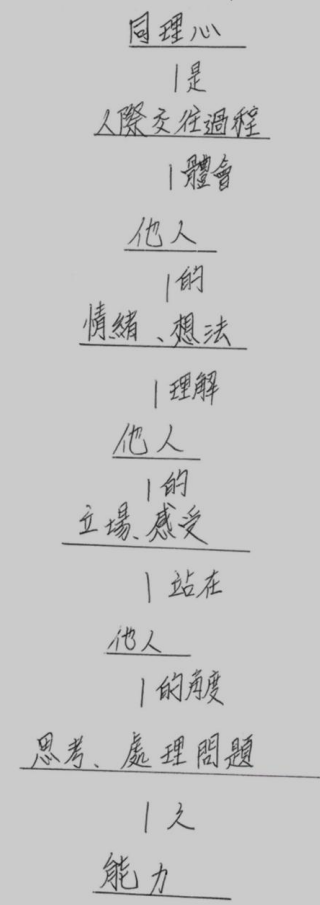 同理心
是
人際交往過程
體會
他人
的
情緒、想法
理解
他人
的
立場、感受
站在
他人
的角度
思考、處理問題
之
能力